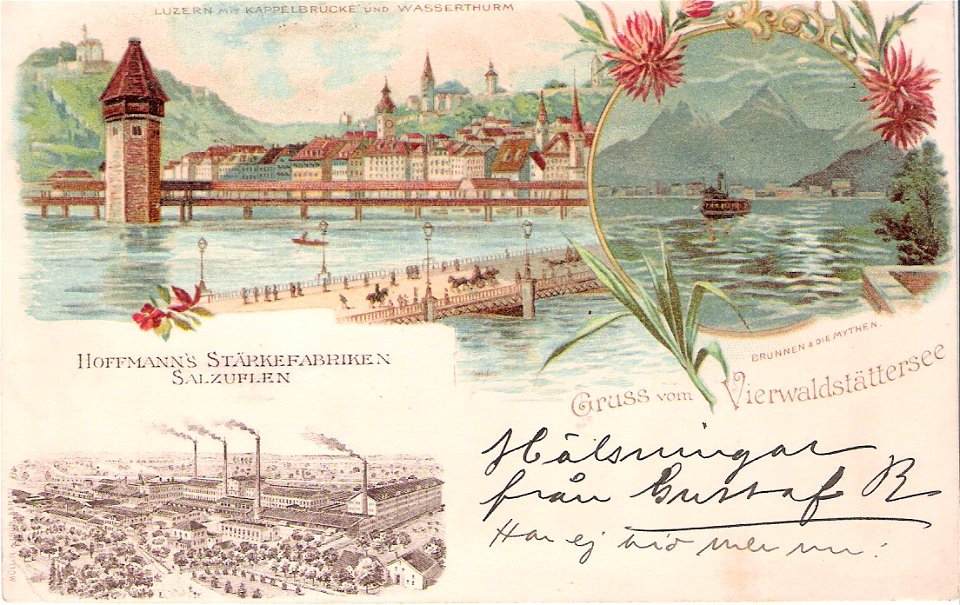 LUZERN MIT KAPPELBRÜCKE UND WASSERTHURM
BRUNNEN & DIE MYTHEN.
Gruss vom Vierwaldstättersee
HOFFMANN'S STÄRKEFABRIKEN
SALZUFLEN
Hälsningar
från Gustaf R
Har ej tid mer nu!